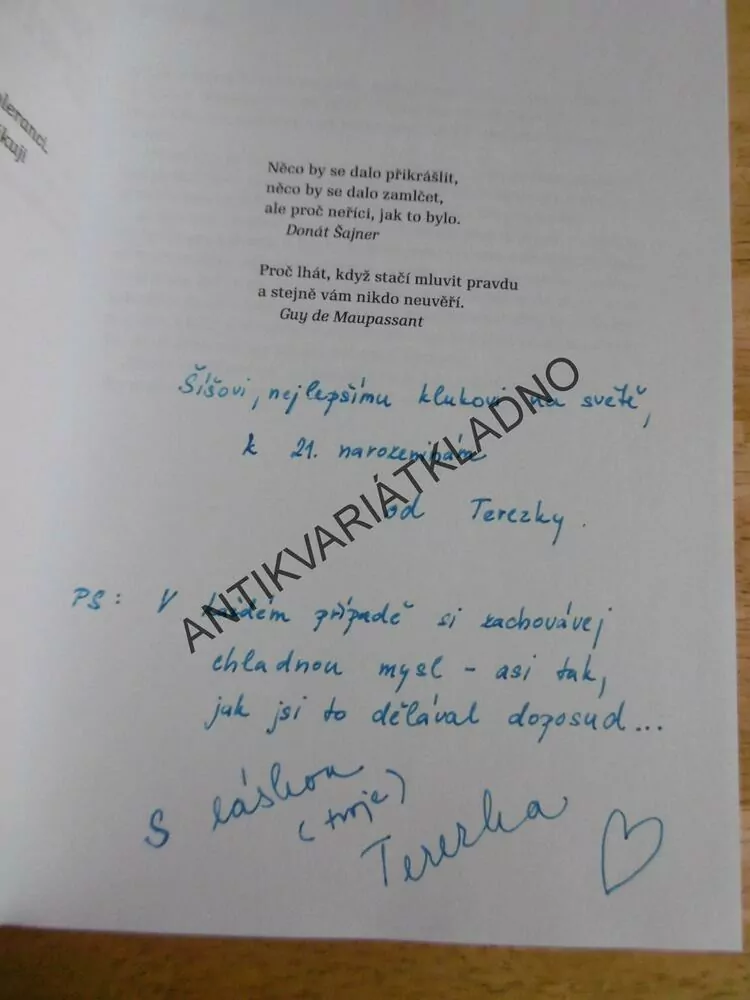 leranci,
kuji
Něco by se dalo přikrášlit,
něco by se dalo zamlčet,
ale proč neříci, jak to bylo.
Donát Šajner
Proč lhát, když stačí mluvit pravdu
a stejně vám nikdo neuvěří.
Guy de Maupassant
Šíšovi, nejlepšímu klukovi na světě,
k 21. narozeninám
od Terezky.
PS: V každém případě si zachovávej
chladnou mysl - asi tak,
jak jsi to dělával doposud...
S láskou
(tvoje)
Terezka
ANTIKVARIÁTKLADNO